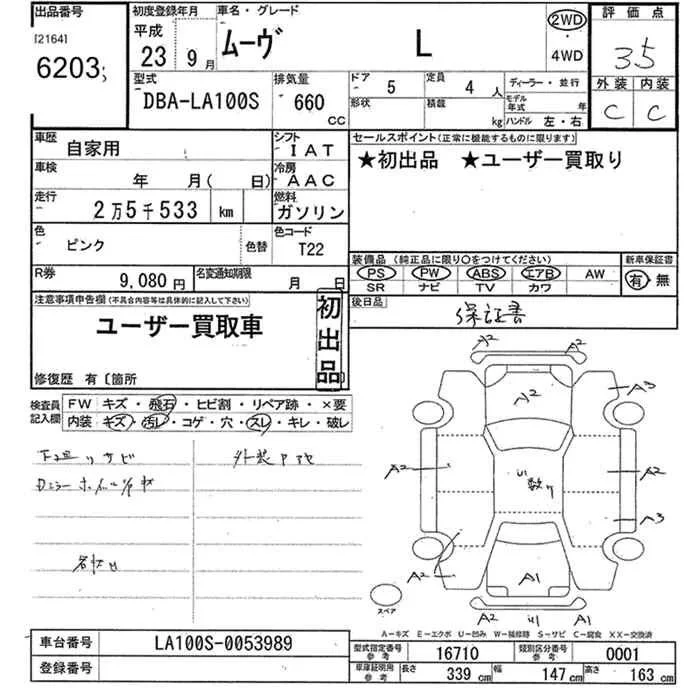 出品番号
[2164]
6203
初度登録年月
平成
23年9月
車名・グレード
ムーヴ L
2WD
・
4WD
評価点
3.5
外装 内装
C C
型式
DBA-LA100S
排気量
660
CC
ドア 5
形状
定員 4 人
積載 kg
ディーラー・並行
モデル年式 年
ハンドル 左・右
車歴
自家用
シフト
IAT
車検
年 月( 日)
冷房
AAC
走行
2万5千533 km
燃料
ガソリン
色
ピンク
色替
色コード
T22
R券
9,080円
名変通知期限
月 日
セールスポイント(正常に機能するものに限ります)
★初出品 ★ユーザー買取り
装備品 (純正品に限り○をつけてください)
PS PW ABS エアB AW
SR ナビ TV カワ
新車保証書
有・無
後日品
保証書
注意事項申告欄(不具合内容等は具体的に記入して下さい)
ユーザー買取車
初出品
修復歴 有〔箇所
検査員記入欄
FW キズ・飛石・ヒビ割・リペア跡・×要
内装 キズ・汚レ・コゲ・穴・スレ・キレ・破レ
下廻りサビ
A2 A2
A2
A3
A2
A2
A3
A2
A1
A2 A1
スペア
A−キズ E−エクボ U−凹み W−補修跡 S−サビ C−腐食 XX−交換済
車台番号
LA100S-0053989
登録番号
型式指定番号
参考
16710
類別区分番号
参考
0001
車庫証明用
参考
長さ 339 cm 幅 147 cm 高さ 163 cm